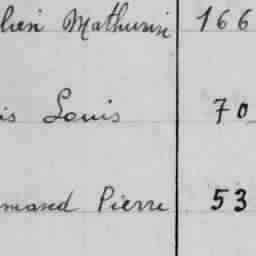 lien Mathurin 166
is Louis 70
mand Pierre 53